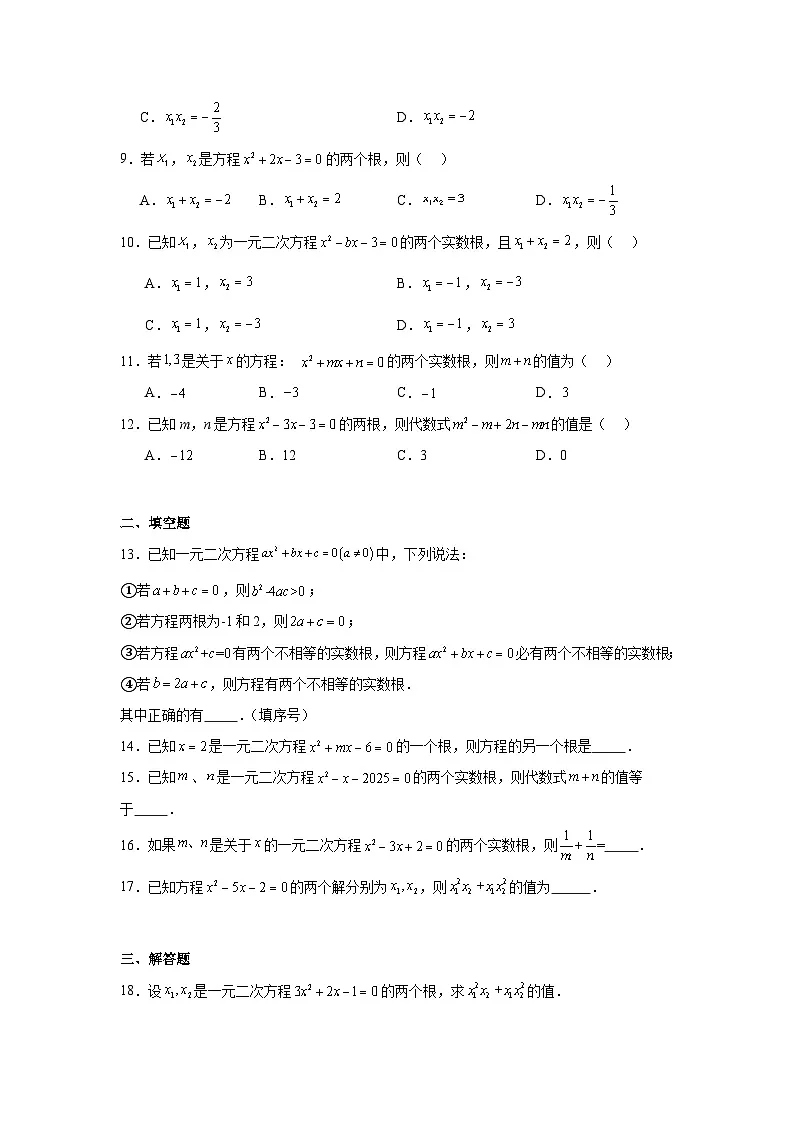 C．x₁x₂ = −2/3 D．x₁x₂ = −2
9．若 x₁，x₂是方程 x² + 2x − 3 = 0 的两个根，则（ ）
A．x₁ + x₂ = −2 B．x₁ + x₂ = 2 C．x₁x₂ = 3 D．x₁x₂ = −1/3
10．已知x₁，x₂为一元二次方程 x² − bx − 3 = 0 的两个实数根，且 x₁ + x₂ = 2，则（ ）
A．x₁ = 1，x₂ = 3 B．x₁ = −1，x₂ = −3
C．x₁ = 1，x₂ = −3 D．x₁ = −1，x₂ = 3
11．若1,3是关于 x 的方程： x² + mx + n = 0 的两个实数根，则 m + n 的值为（ ）
A．−4 B．−3 C．−1 D．3
12．已知 m，n 是方程 x² − 3x − 3 = 0 的两根，则代数式 m² − m + 2n − mn 的值是（ ）
A．−12 B．12 C．3 D．0
二、填空题
13．已知一元二次方程 ax² + bx + c = 0(a ≠ 0) 中，下列说法：
①若 a + b + c = 0，则 b²-4ac>0；
②若方程两根为-1 和 2，则 2a + c = 0；
③若方程 ax²+c=0 有两个不相等的实数根，则方程 ax² + bx + c = 0 必有两个不相等的实数根；
④若 b = 2a + c，则方程有两个不相等的实数根．
其中正确的有_____．（填序号）
14．已知 x = 2 是一元二次方程 x² + mx − 6 = 0 的一个根，则方程的另一个根是_____．
15．已知 m 、n 是一元二次方程 x² − x − 2025 = 0 的两个实数根，则代数式 m + n 的值等
于_____．
16．如果 m、n 是关于 x 的一元二次方程 x² − 3x + 2 = 0 的两个实数根，则 1/m + 1/n =_____．
17．已知方程 x² − 5x − 2 = 0 的两个解分别为 x₁, x₂，则 x₁²x₂ + x₁x₂² 的值为______．
三、解答题
18．设 x₁, x₂ 是一元二次方程 3x² + 2x − 1 = 0 的两个根，求 x₁²x₂ + x₁x₂² 的值．